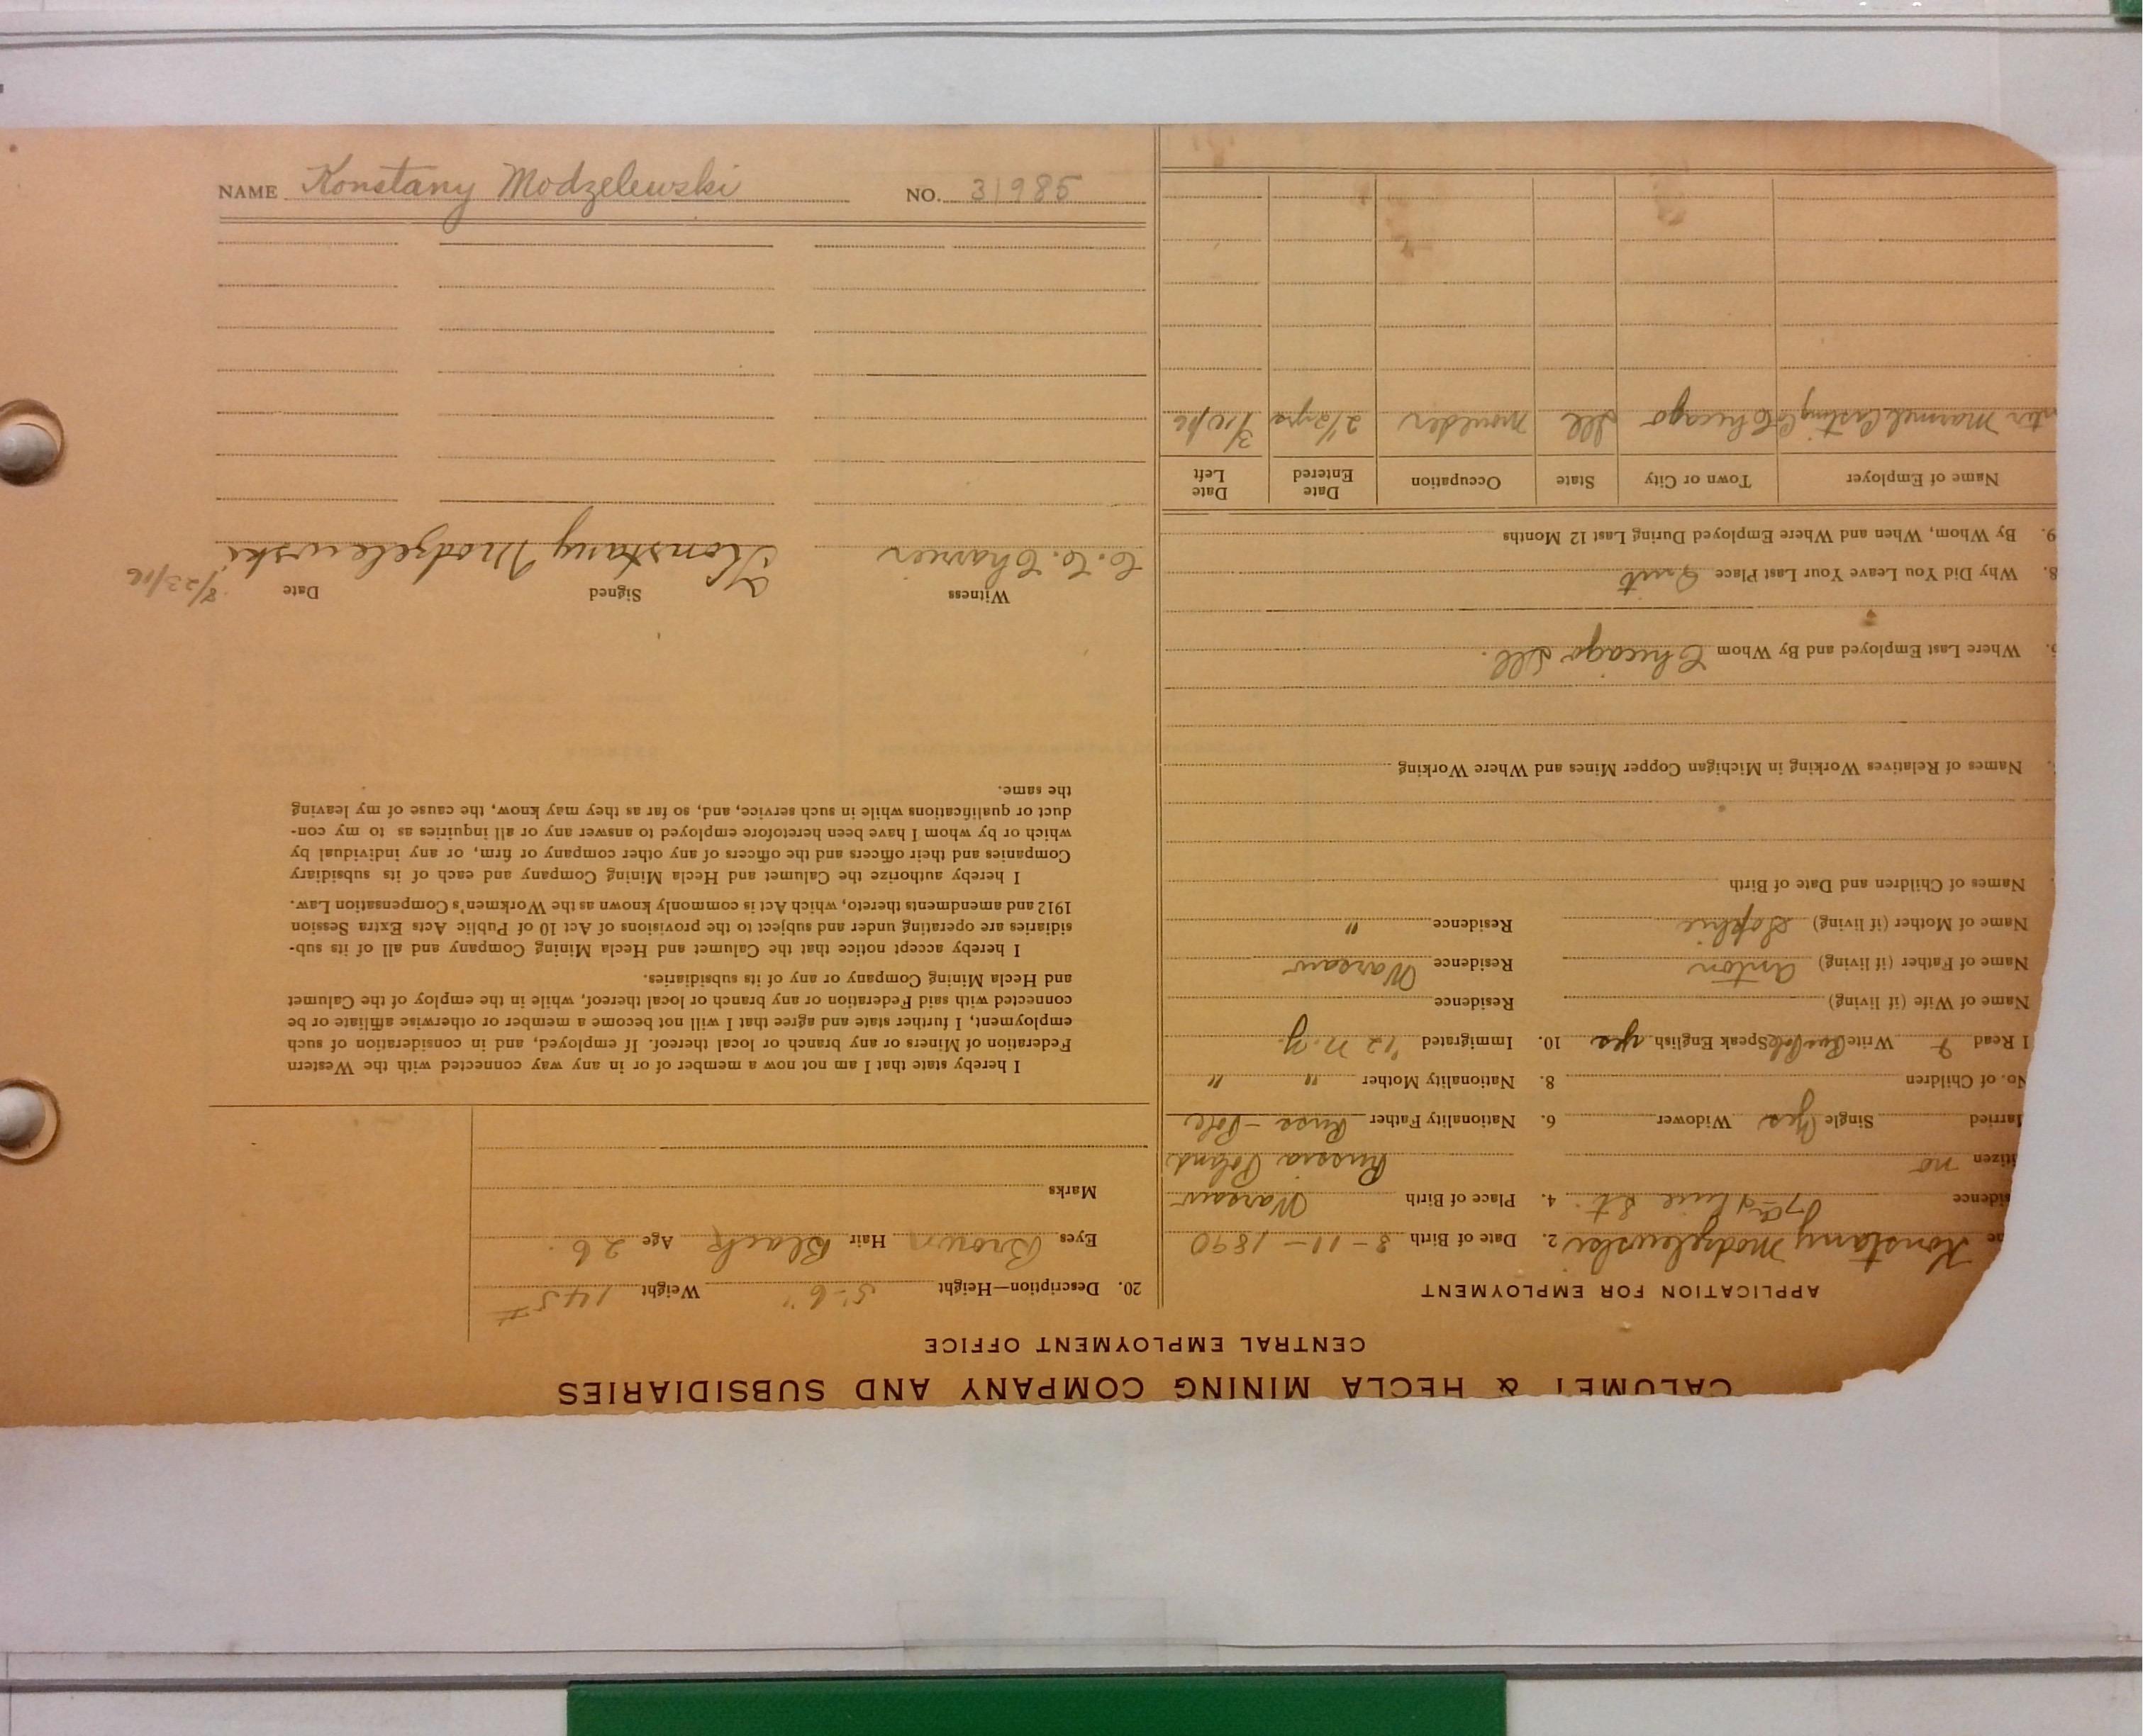 CALUMET & HECLA MINING COMPANY AND SUBSIDIARIES
CENTRAL EMPLOYMENT OFFICE
APPLICATION FOR EMPLOYMENT
me Konstany Modzelewski 2. Date of Birth 8-11-1890
sidence Pine St. 4. Place of Birth Warsaw
itizen no Russia Poland
arried Single Yes Widower 6. Nationality Father Russ-Pole
No. of Children 8. Nationality Mother " "
I Read & Write Russ Pole Speak English yes 10. Immigrated '12 N.Y.
Name of Wife (if living) Residence
Name of Father (if living) Anton Residence Warsaw
Name of Mother (if living) Sophie Residence "
Names of Children and Date of Birth
Names of Relatives Working in Michigan Copper Mines and Where Working
Where Last Employed and By Whom Chicago Ill.
8. Why Did You Leave Your Last Place Quit
9. By Whom, When and Where Employed During Last 12 Months
Name of Employer Town or City State Occupation Date Entered Date Left
Casting Co Chicago Ill moulder 2 1/2 yrs 3/10/16
20. Description—Height 5-6" Weight 145#
Eyes Brown Hair Black Age 26
Marks
I hereby state that I am not now a member of or in any way connected with the Western
Federation of Miners or any branch or local thereof. If employed, and in consideration of such
employment, I further state and agree that I will not become a member or otherwise affiliate or be
connected with said Federation or any branch or local thereof, while in the employ of the Calumet
and Hecla Mining Company or any of its subsidiaries.
I hereby accept notice that the Calumet and Hecla Mining Company and all of its sub-
sidiaries are operating under and subject to the provisions of Act 10 of Public Acts Extra Session
1912 and amendments thereto, which Act is commonly known as the Workmen's Compensation Law.
I hereby authorize the Calumet and Hecla Mining Company and each of its subsidiary
Companies and their officers and the officers of any other company or firm, or any individual by
which or by whom I have been heretofore employed to answer any or all inquiries as to my con-
duct or qualifications while in such service, and, so far as they may know, the cause of my leaving
the same.
Witness Signed Date 8/23/16
C. C. Konstany Modzelewski
NAME Konstany Modzelewski NO. 31985